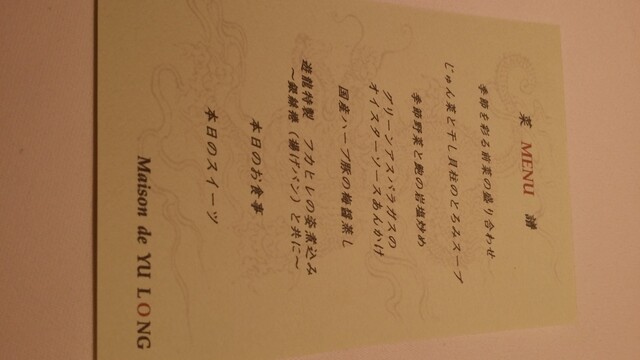 菜 MENU 譜
季節を彩る前菜の盛り合わせ
じゅん菜と干し貝柱のとろみスープ
季節野菜と鮑の岩塩炒め
グリーンアスパラガスの
オイスターソースあんかけ
国産ハーブ豚の梅醤蒸し
遊龍特製 フカヒレの姿煮込み
〜銀絲捲（揚げパン）と共に〜
本日のお食事
本日のスイーツ
Maison de YU LONG